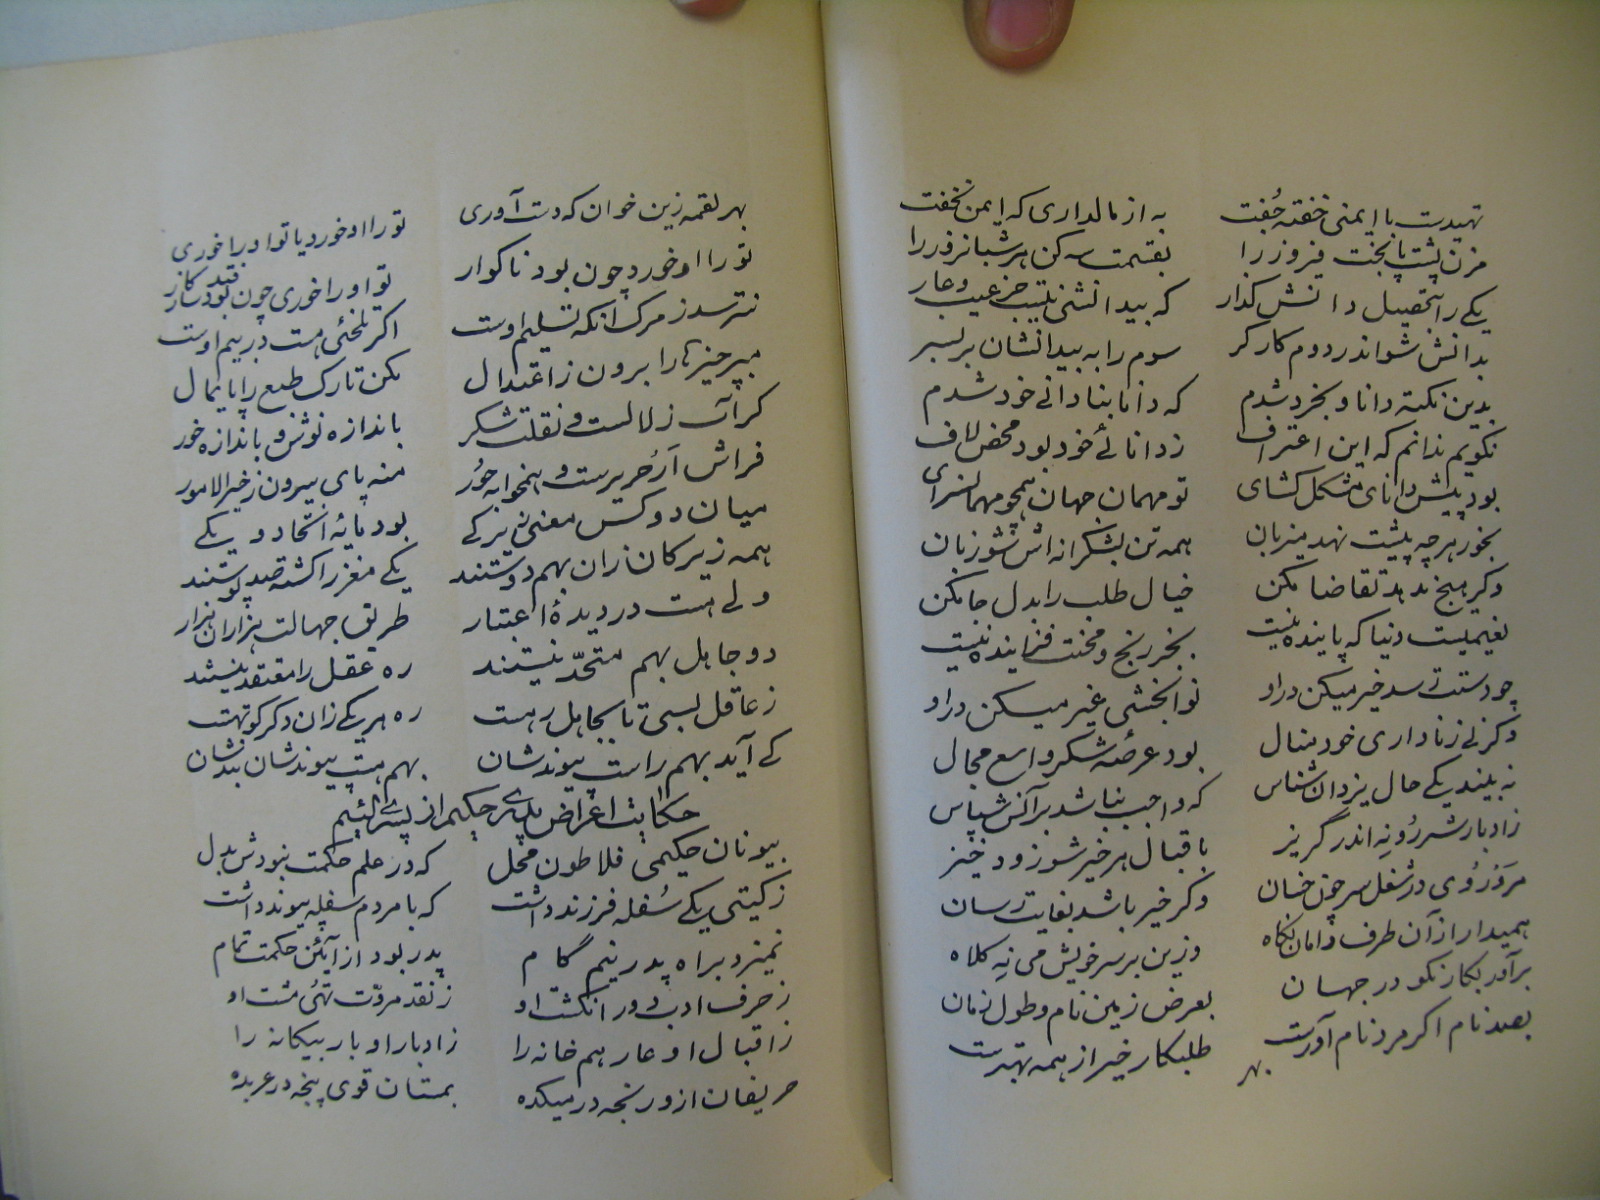 تهیدست با ایمنی خفته جفت به از مالداری که ایمن نخفت
مزن پشت پا بخت فیروز را بقسمت سه کن هر شبانروز را
یکے را بتحصیل دانش گذار که بیدانشی نیست جز عیب و عار
بدانش شو اندر دوم کارگر سوم را به بیدانشان بر بسر
بدین نکته دانا و بخرد شدم که دانا بنادانی خود شدم
نگویم ندانم که این اعتراف ز دانائے خود بود محض لاف
بود پیش دانای مشکل کشای تو مهمان جهان همچو مهمانسرای
بخور هرچه پیشت نهد میزبان همه تن بشکرانه اش شو زبان
وگر هیچ ندهد تقاضا مکن خیال طلب را بدل جا مکن
نعیمیست دنیا که پاینده نیست بجز رنج و محنت فزاینده نیست
چو دستت رسد خیر میکن در او نوابخشی غیر میکن در او
وگرنی ز ناداری خود منال بود عرصه شکر واسع مجال
نه بیند یکے حال یزدان شناس که واجب نباشد بر آنش سپاس
ز ادبار شر رو نه اندر گریز باقبال هر خیر شو زود خیز
مرو زوی در شغل سر چون خسان وگر خیر باشد بغایت رسان
همیدار از آن طرف دامان نگاه وزین بر سر خویش می نه کلاه
برآور بکار نکو در جهان بعرض زمین نام و طول زمان
بصد نام اگر مرد نام آورست طلبکار خیر از همه بهترست
بهر
بهر لقمه زین خوان که دست آوری تو را او خورد یا تو او را خوری
تو را او خورد چون بود ناگوار تو او را خوری چون بود سازگار
نترسد ز مرگ آنکه تسلیم اوست اگر تلخئی هست در بیم اوست
مبر چیزها را برون ز اعتدال مکن تارک طبع را پایمال
گر آبت زلالست و نقلت شکر باندازه نوش و باندازه خور
فراش ار حریرست و همخوابه حور منه پای بیرون ز خیر الامور
میان دو کس معنی زیرکے بود مایهٔ اتحاد و یکے
همه زیرکان زان بهم دوستند یکے مغز را گشته صد پوستند
ولے هست در دیدهٔ اعتبار طریق جهالت هزاران هزار
دو جاهل بهم متحد نیستند ره عقل را معتقد نیستند
ز عاقل بسی تا بجاهل رهست ره هر یکے زان دگر کوتهست
کے آید بهم راست پیوندشان بهم نیست پیوندشان بندشان
حکایت اعراض پدرے حکیم از پسرے لئیم
بیونان حکیمی فلاطون محل که در علم حکمت نبودش بدل
ز گیتی یکے سفله فرزند داشت که با مردم سفله پیوند داشت
پدر بود از آیین حکمت تمام نمیزد براه پدر نیم گام
ز حرف ادب دور انگشت او ز نقد مروت تهی مشت او
ز اقبال او عار هم خانه را ز ادبار او بار بیگانه را
حریفان ازو رنجه در میکده بمستان قوی پنجه در عربده